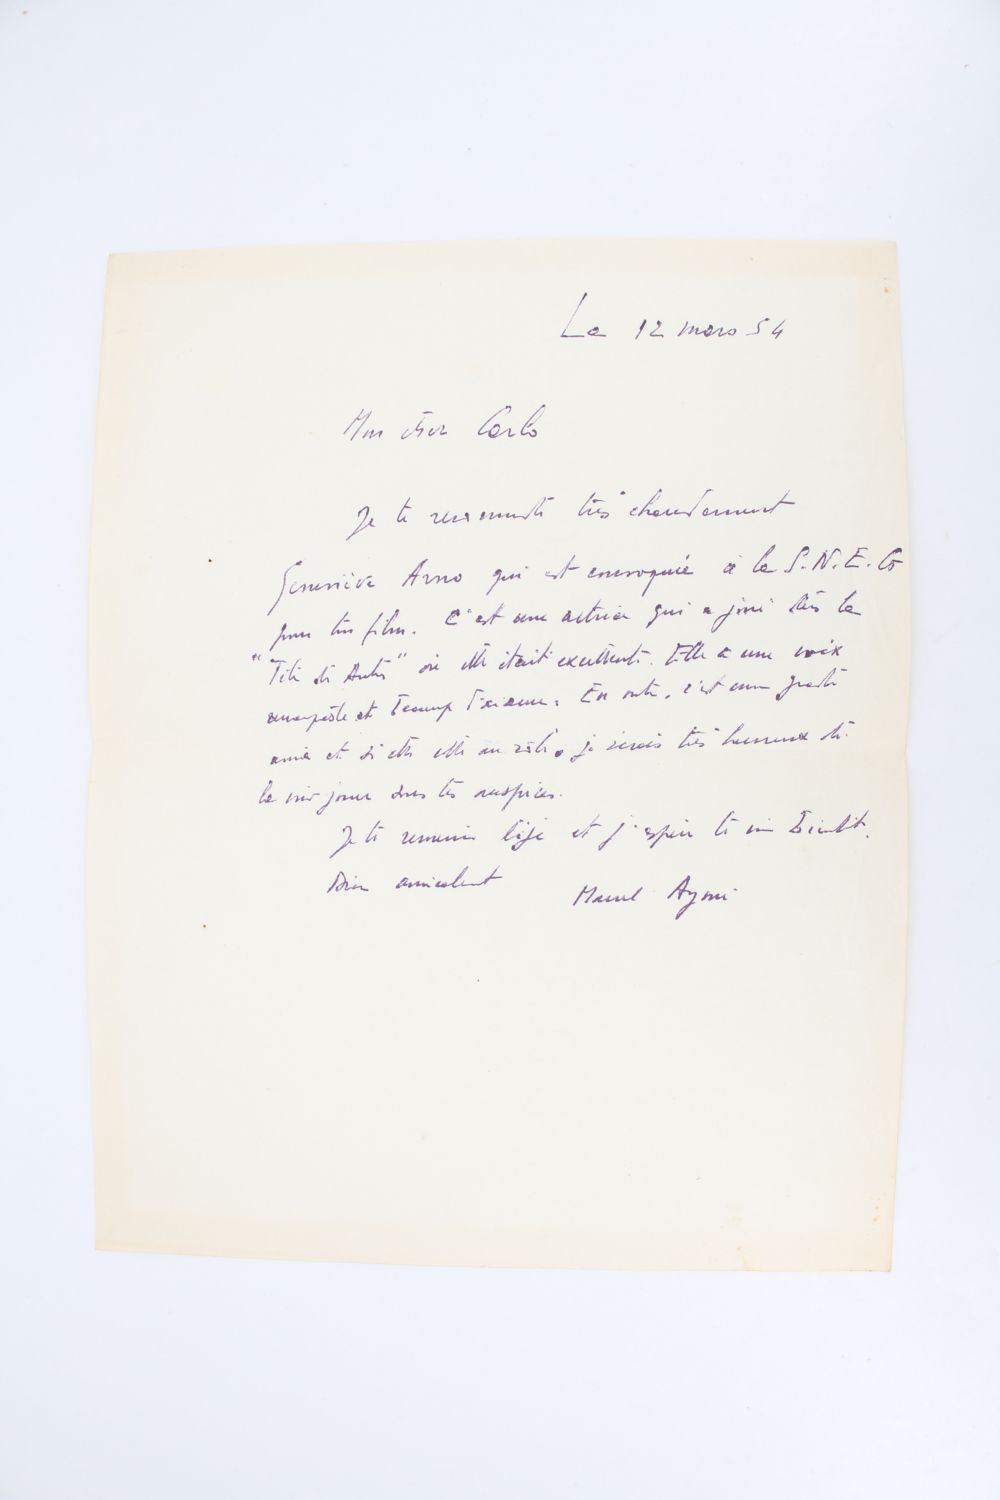 Le 12 mars 54
Mon cher Carlo
Je te recommande très chaudement
Geneviève Arno qui est convoquée à la S.N.E.G
pour ton film. C'est une actrice qui a joué dans la
"Tête des Autres" où elle était excellente. Elle a une voix
et beaup d'aisance. En outre, c'est une grande
amie et si elle a un rôle, je serais très heureux de
la voir jouer sous tes auspices.
Je te remercie déjà et j'espère te voir bientôt.
Bien amicalement
Marcel Aymé